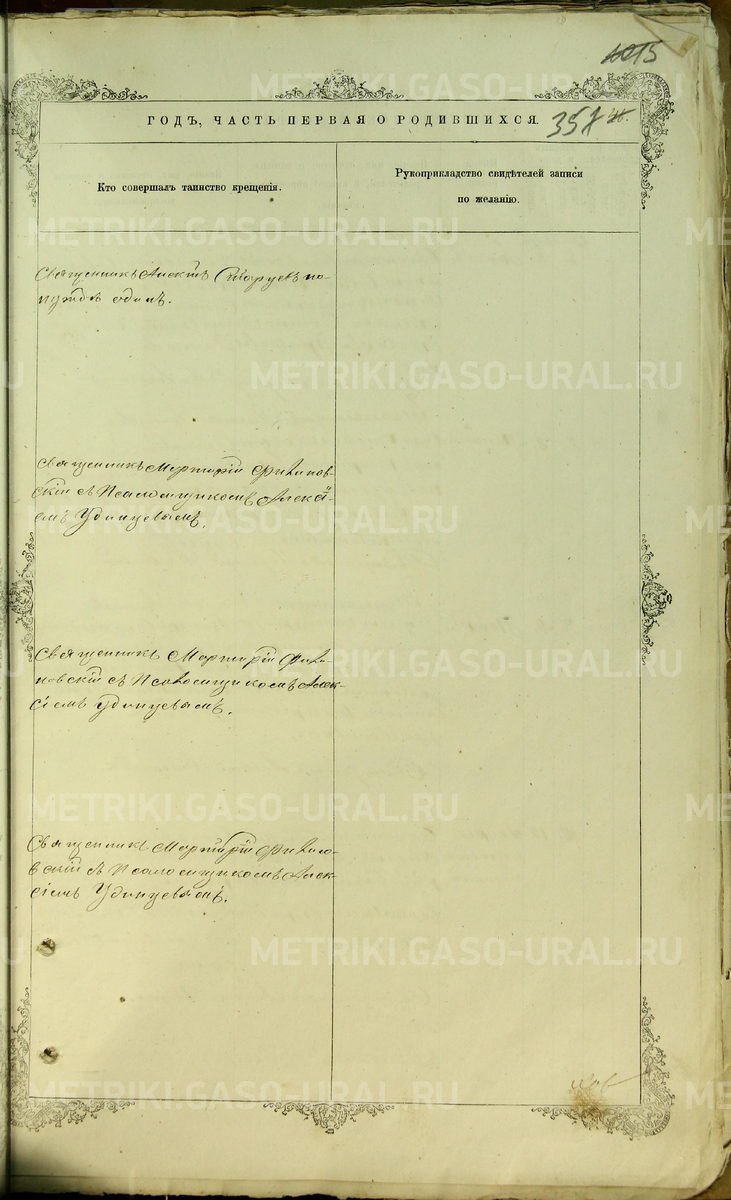 1015
METRIKI.GASO-URAL.RU
ГОДЪ, ЧАСТЬ ПЕРВАЯ О РОДИВШИХСЯ.
357
Кто совершалъ таинство крещенія.
Рукоприкладство свидѣтелей записи
по желанію.
Священникъ по-
нуждѣ одинъ.
Священникъ Мартирій Филинов-
скій съ Псаломщикомъ Алексі-
емъ Удинцевымъ.
Священникъ Мартирій Фили-
новскій съ Псаломщикомъ Алек-
сіемъ Удинцевымъ.
Священникъ Мартирій Филино-
вскій съ Псаломщикомъ Алек-
сіемъ Удинцевымъ.